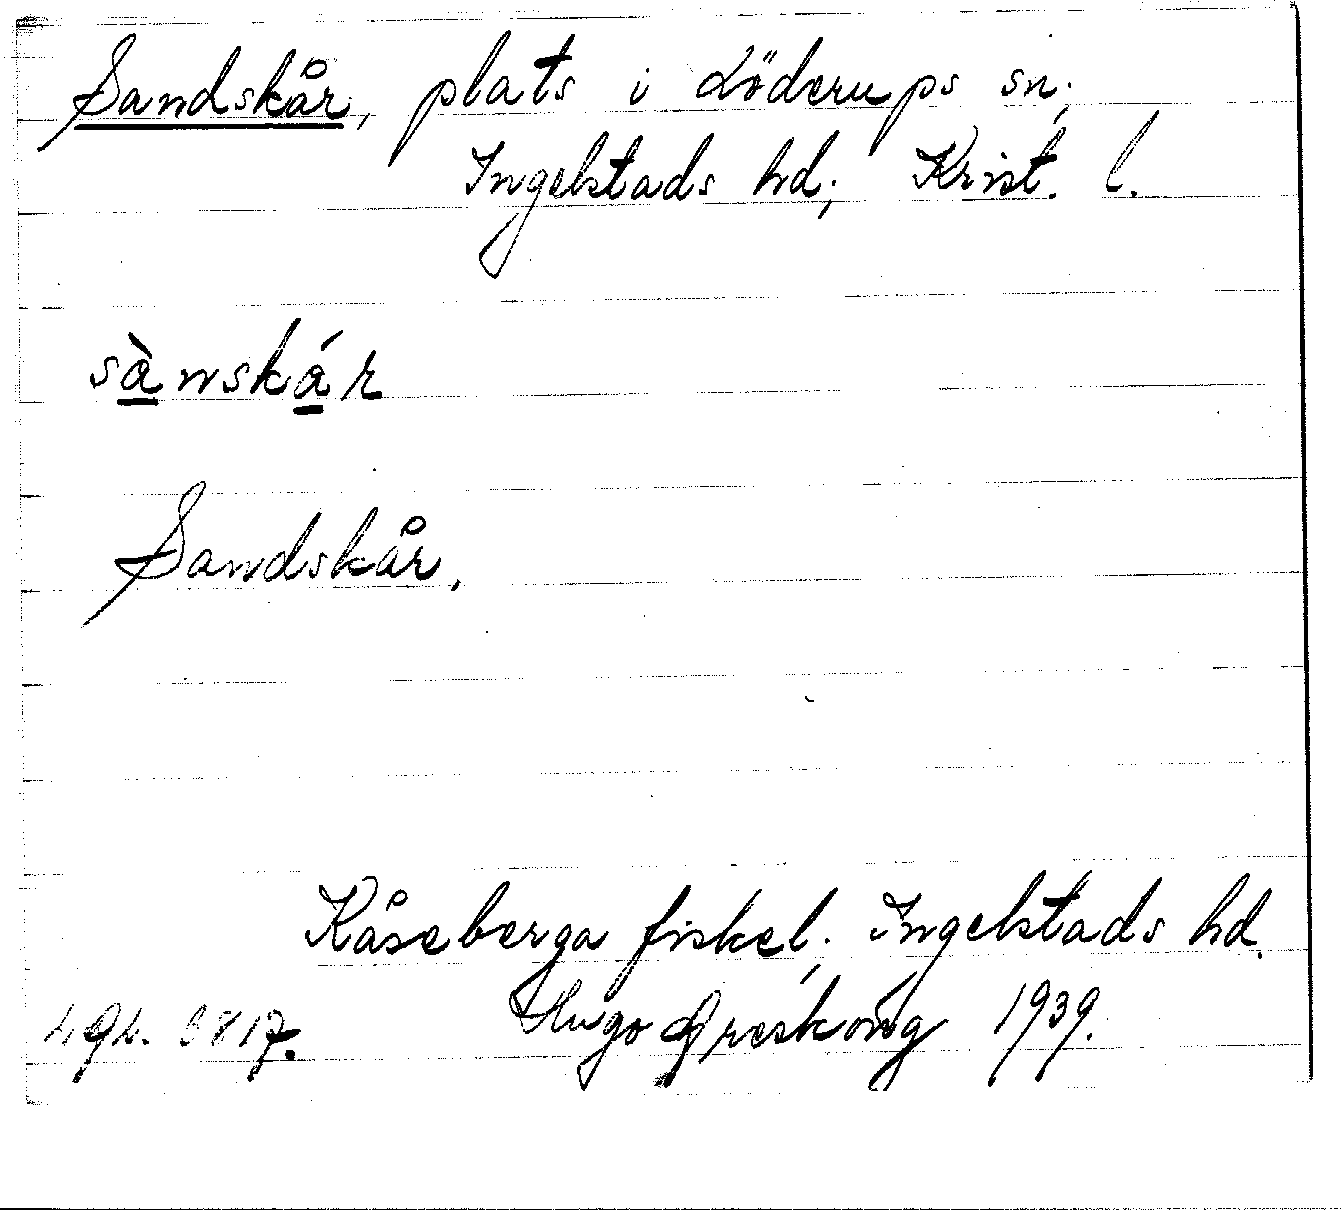 Sandskår, plats i Löderups sn;
Ingelstads hd; Krist. l.
sànskár
Sandskår.
Kåseberga fiskel; Ingelstads hd.
Hugo Areskoug 1939.